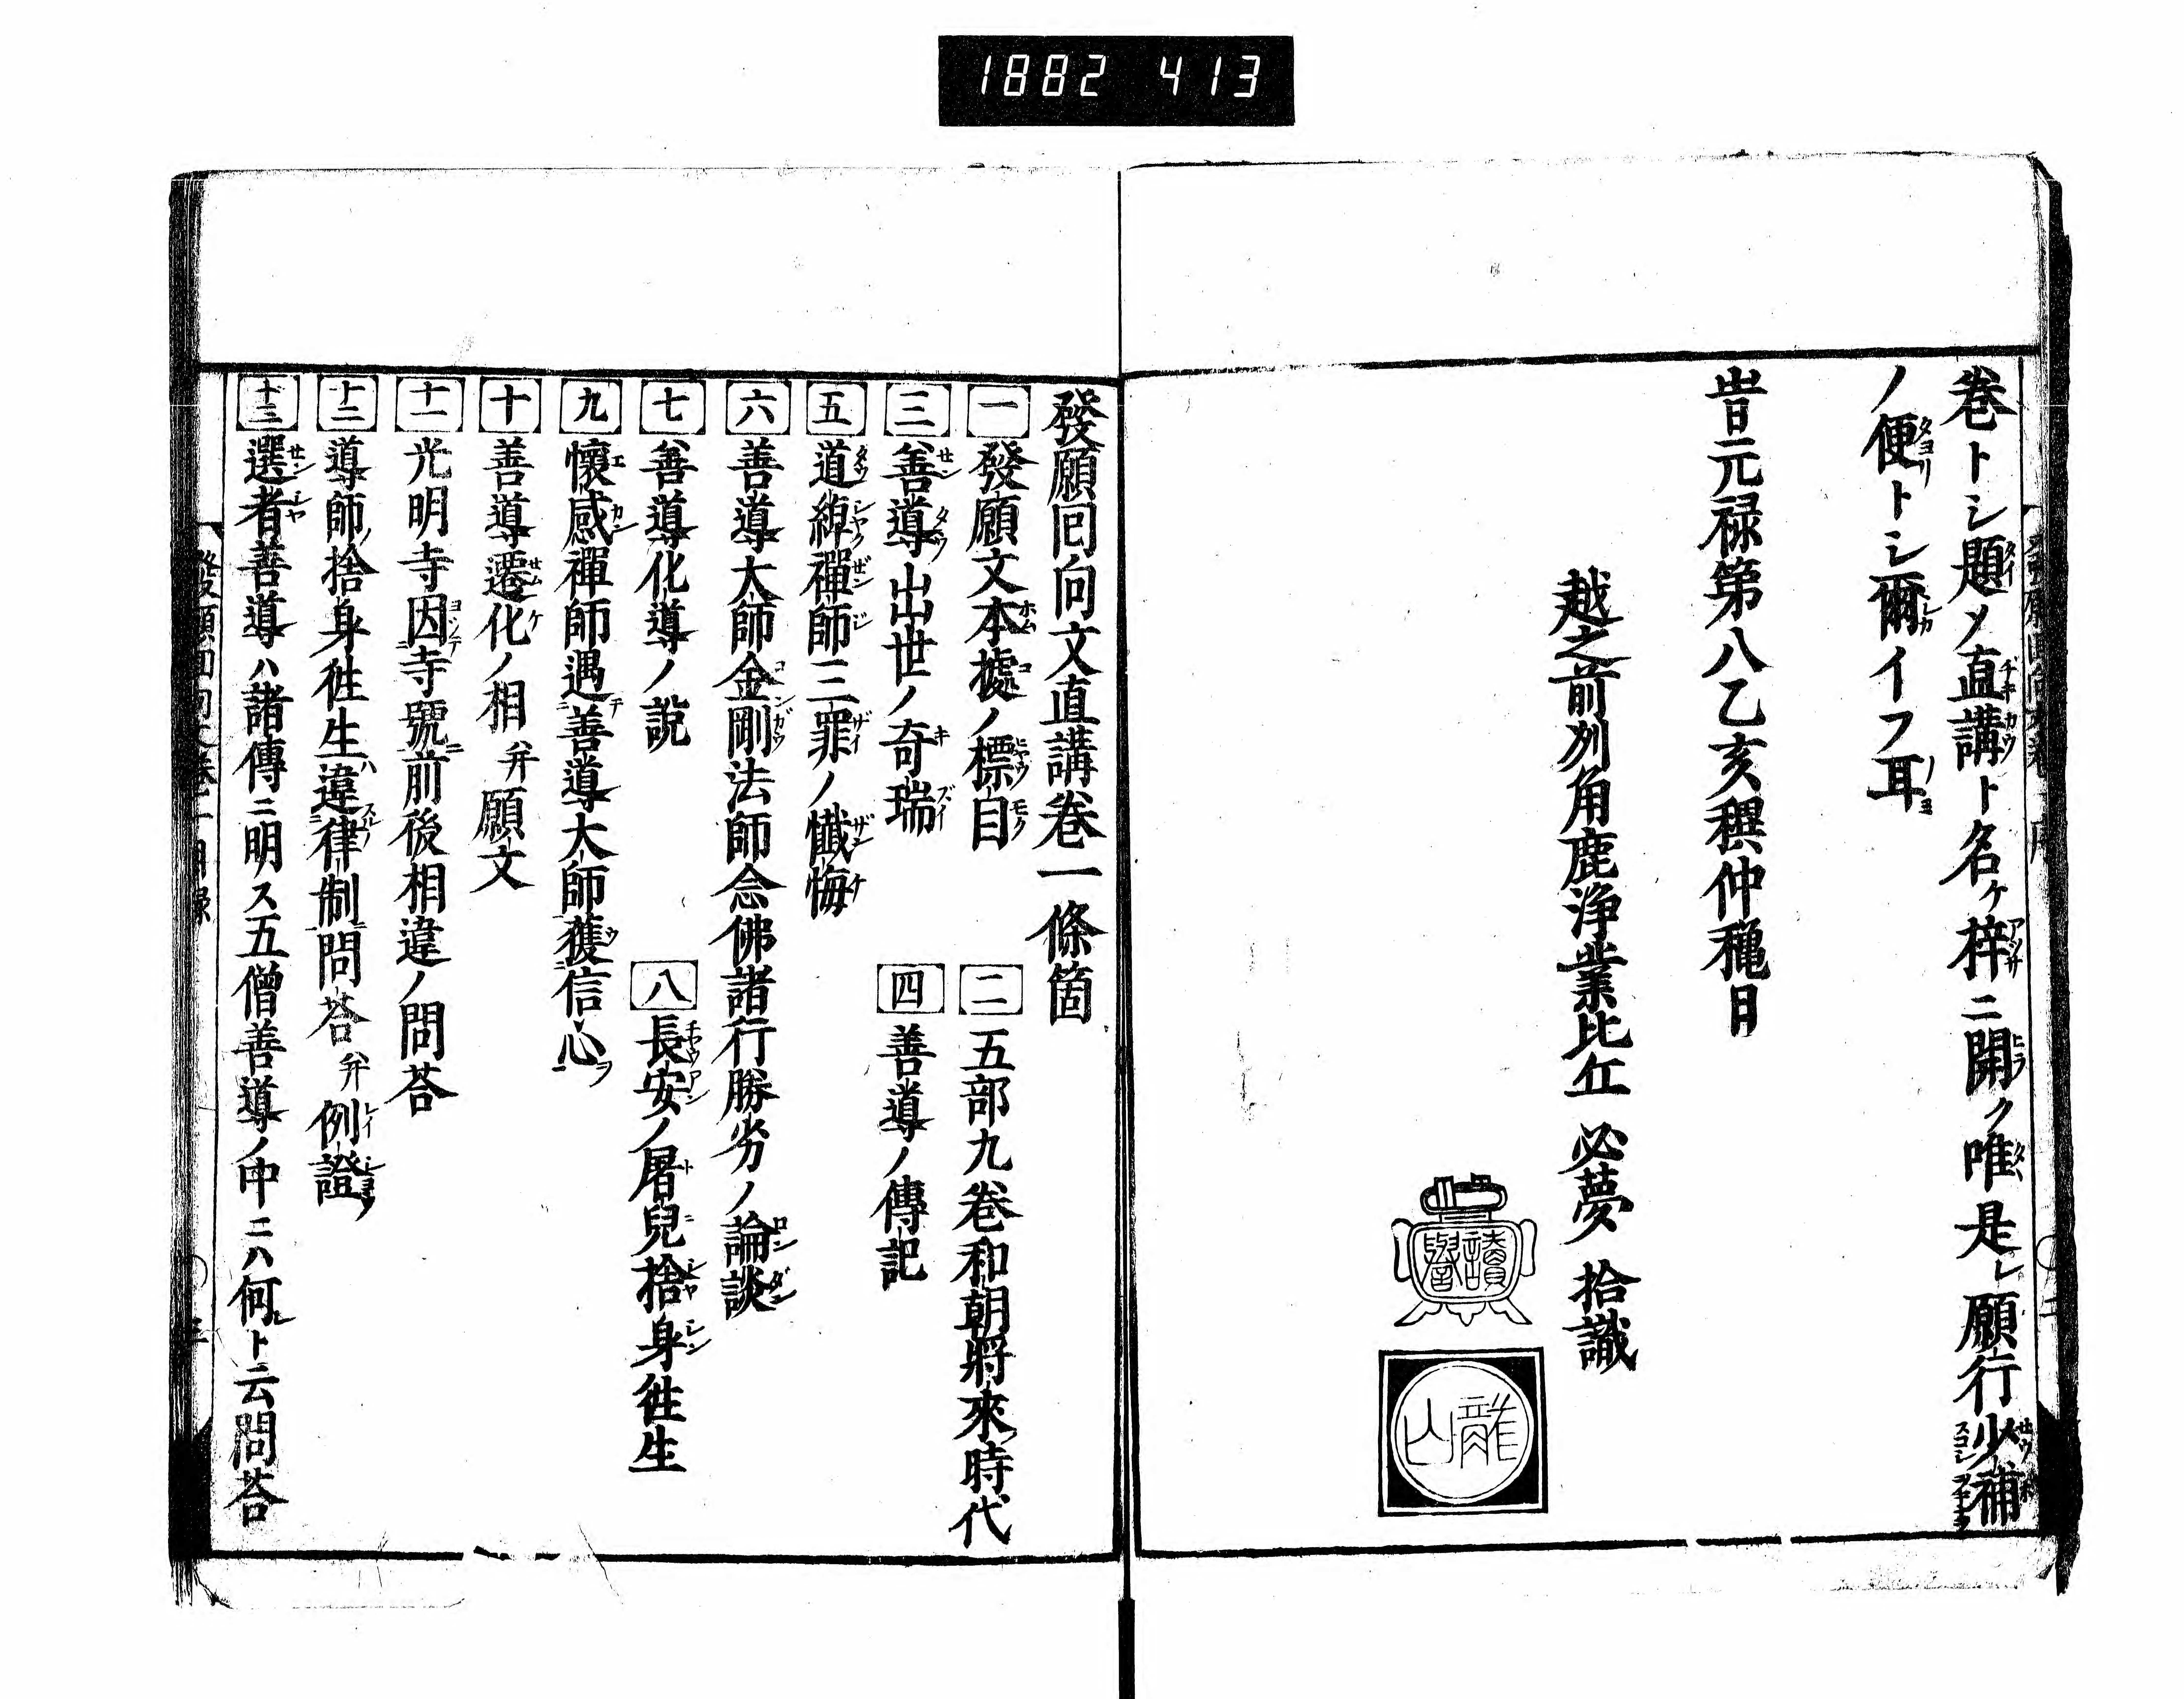 1882 413
巻トシ題メ直講ト名ケ梓ニ開ク唯是レ願行少補
ノ便トシ爾イフ耳
旹元禄第八乙亥穓仲穐日
越之前刕角鹿浄業比丘 必夢 拾識
讀譽
龍山
發願囘向文直講巻一條箇
一 發願文本據ノ標目 二 五部九巻和朝將來ノ時代
三 善導出世ノ奇瑞 四 善導ノ傳記
五 道綽禪師三罪ノ懺悔
六 善導大師金剛法師念佛諸行勝劣ノ論談
七 善導化導ノ説 八 長安ノ屠兒捨身徃生
九 懷感禪師遇善導大師獲信心ヲ
十 善導遷化ノ相 幷 願文
十一 光明寺因寺號前後相違ノ問荅
十二 導師ノ捨身徃生ハ違律制問荅 幷 例證
十三 選者善導ハ諸傳ニ明ス五僧善導ノ中ニハ何レト云問荅